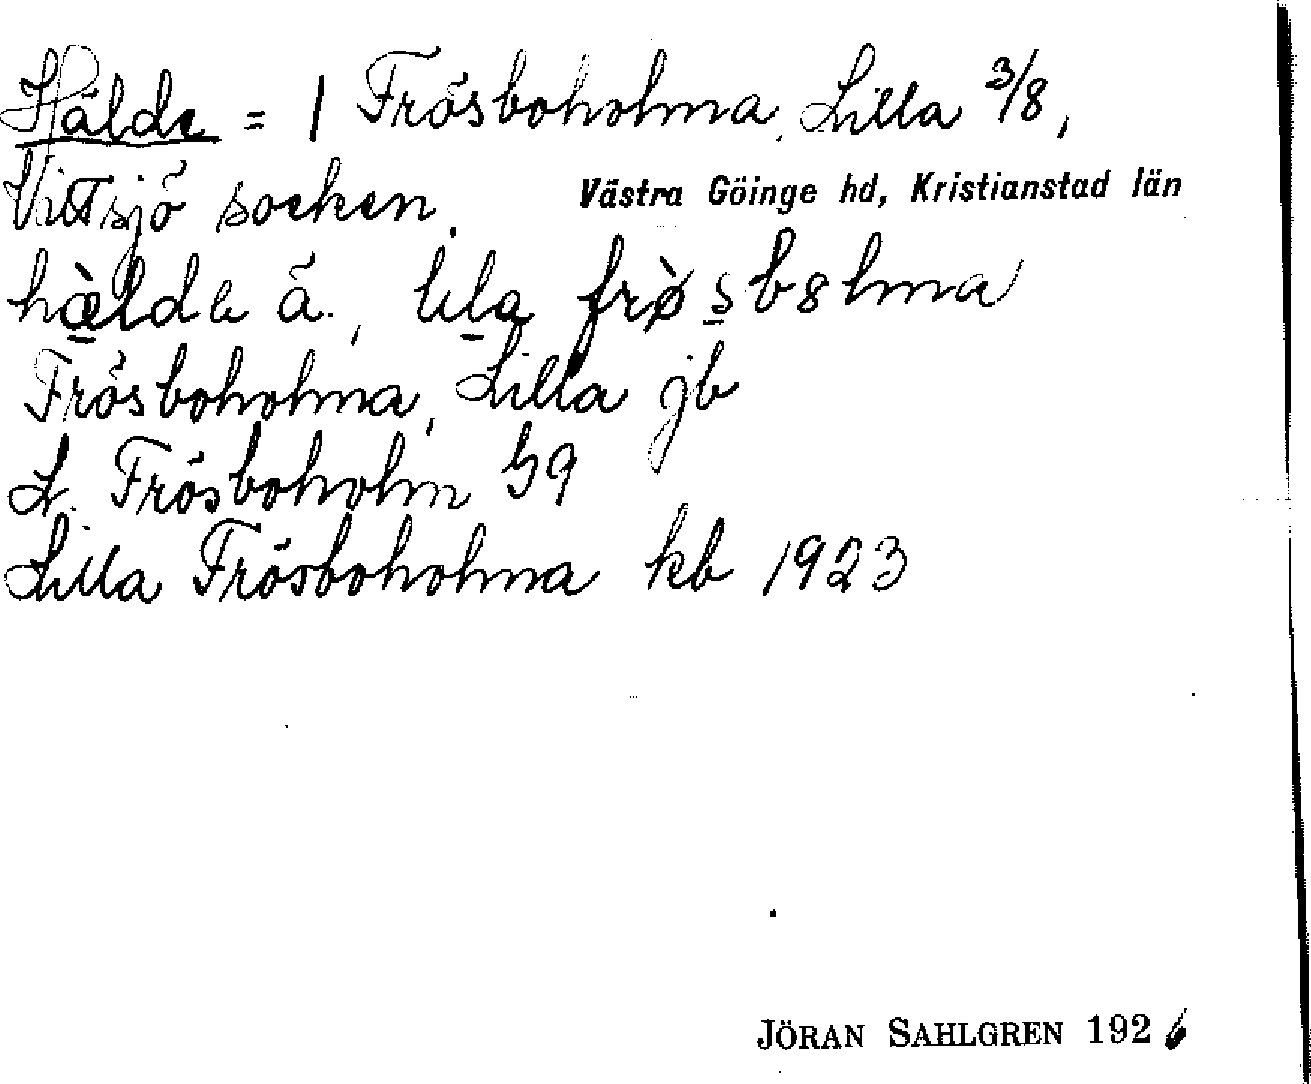 Hälde = 1 Frösboholma, Lilla 3/8,
Vittsjö socken. Västra Göinge hd, Kristianstad län
hælde ä., lila frøsbolma
Frösboholma, Lilla jb
L. Frösboholm G9
Lilla Frösboholma kb 1923
JÖRAN SAHLGREN 1926